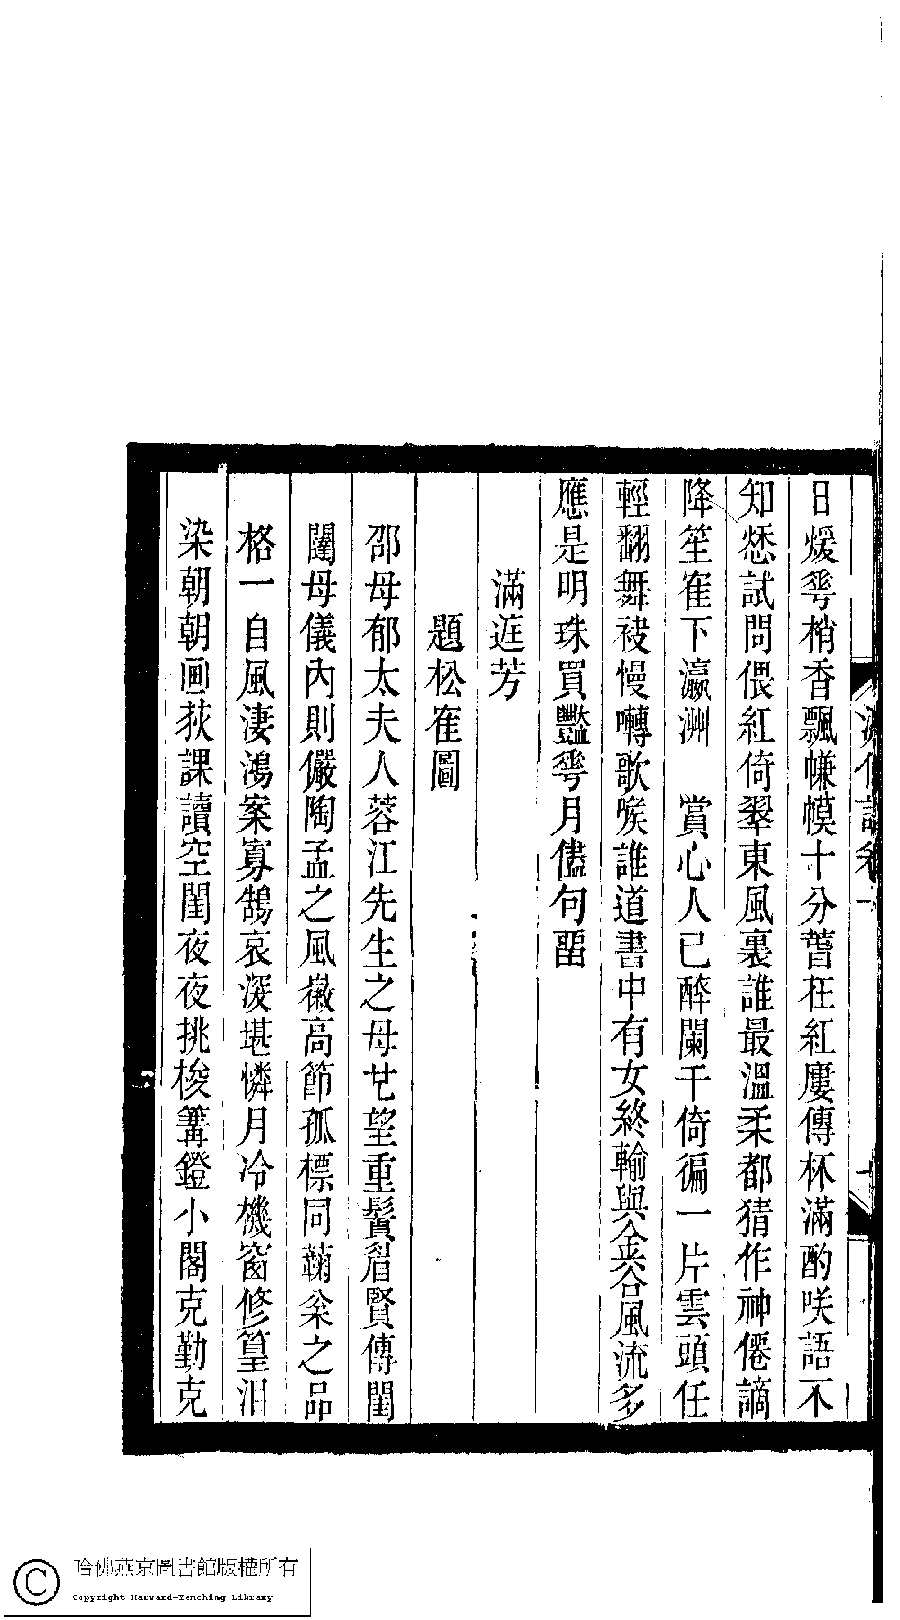 日煖䔢梢香飄㡘幙十分蒈枉紅廔傳杯滿酌咲語不
知愁試問偎紅倚翠東風裏誰最溫柔都猜作神僊謫
降笙寉下瀛洲　賞心人已醉闌干倚徧一片雲頭任
輕翻舞袯慢囀歌喉誰道書中有女終輸與金谷風流多
應是明珠買豔䔢月儘句畱
滿遅芳
題松寉圖
邵母郁太夫人蓉江先生之母也望重鬢眉賢傳閨
闥母儀內則儼陶孟之風徽高節孤標同蘜枀之品
格一自風淒鴻案寡鵠哀深堪憐月冷機窗修篁淚
染朝朝画荻課讀空閨夜夜挑梭篝鐙小閣克勤克
哈佛燕京圖書館版權所有
Copyright Harvard-Yenching Library